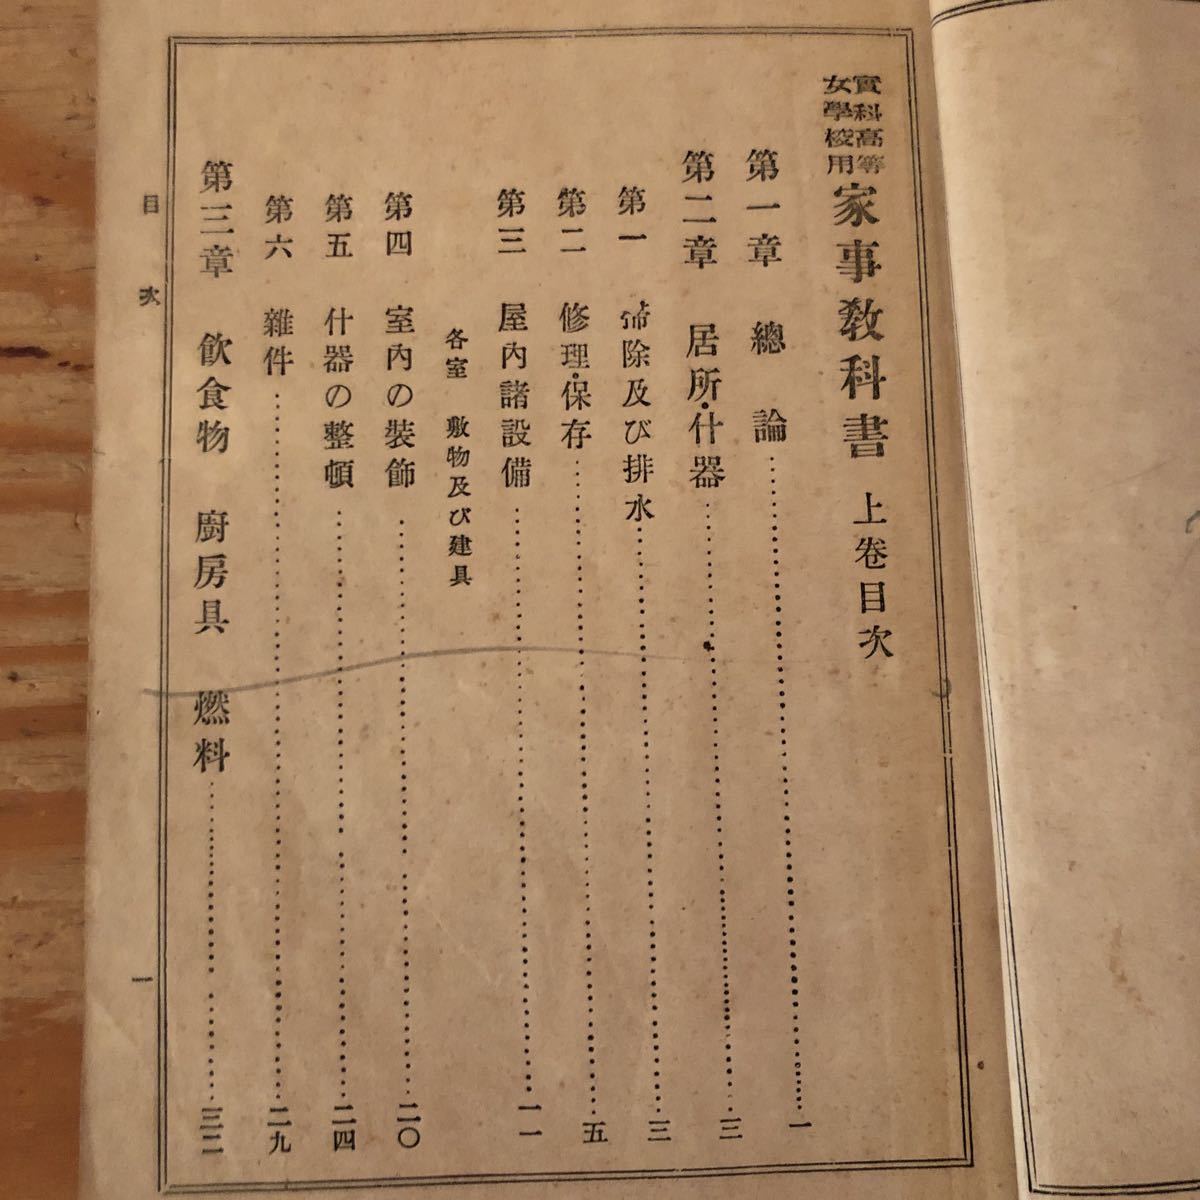 實科高等女學校用 家事敎科書 上卷目次
第一章 總論……一
第二章 居所・什器……三
第一 掃除及び排水……三
第二 修理・保存……五
第三 屋內諸設備……一一
各室 敷物及び建具
第四 室內の裝飾……二〇
第五 什器の整頓……二四
第六 雜件……二九
第三章 飮食物 廚房具 燃料……三二
目次 一